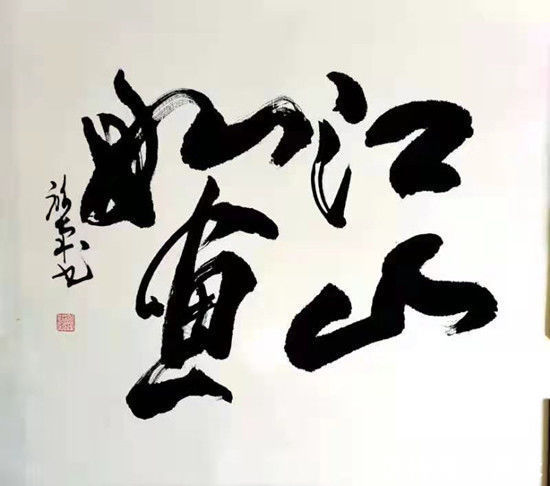 江山
如画